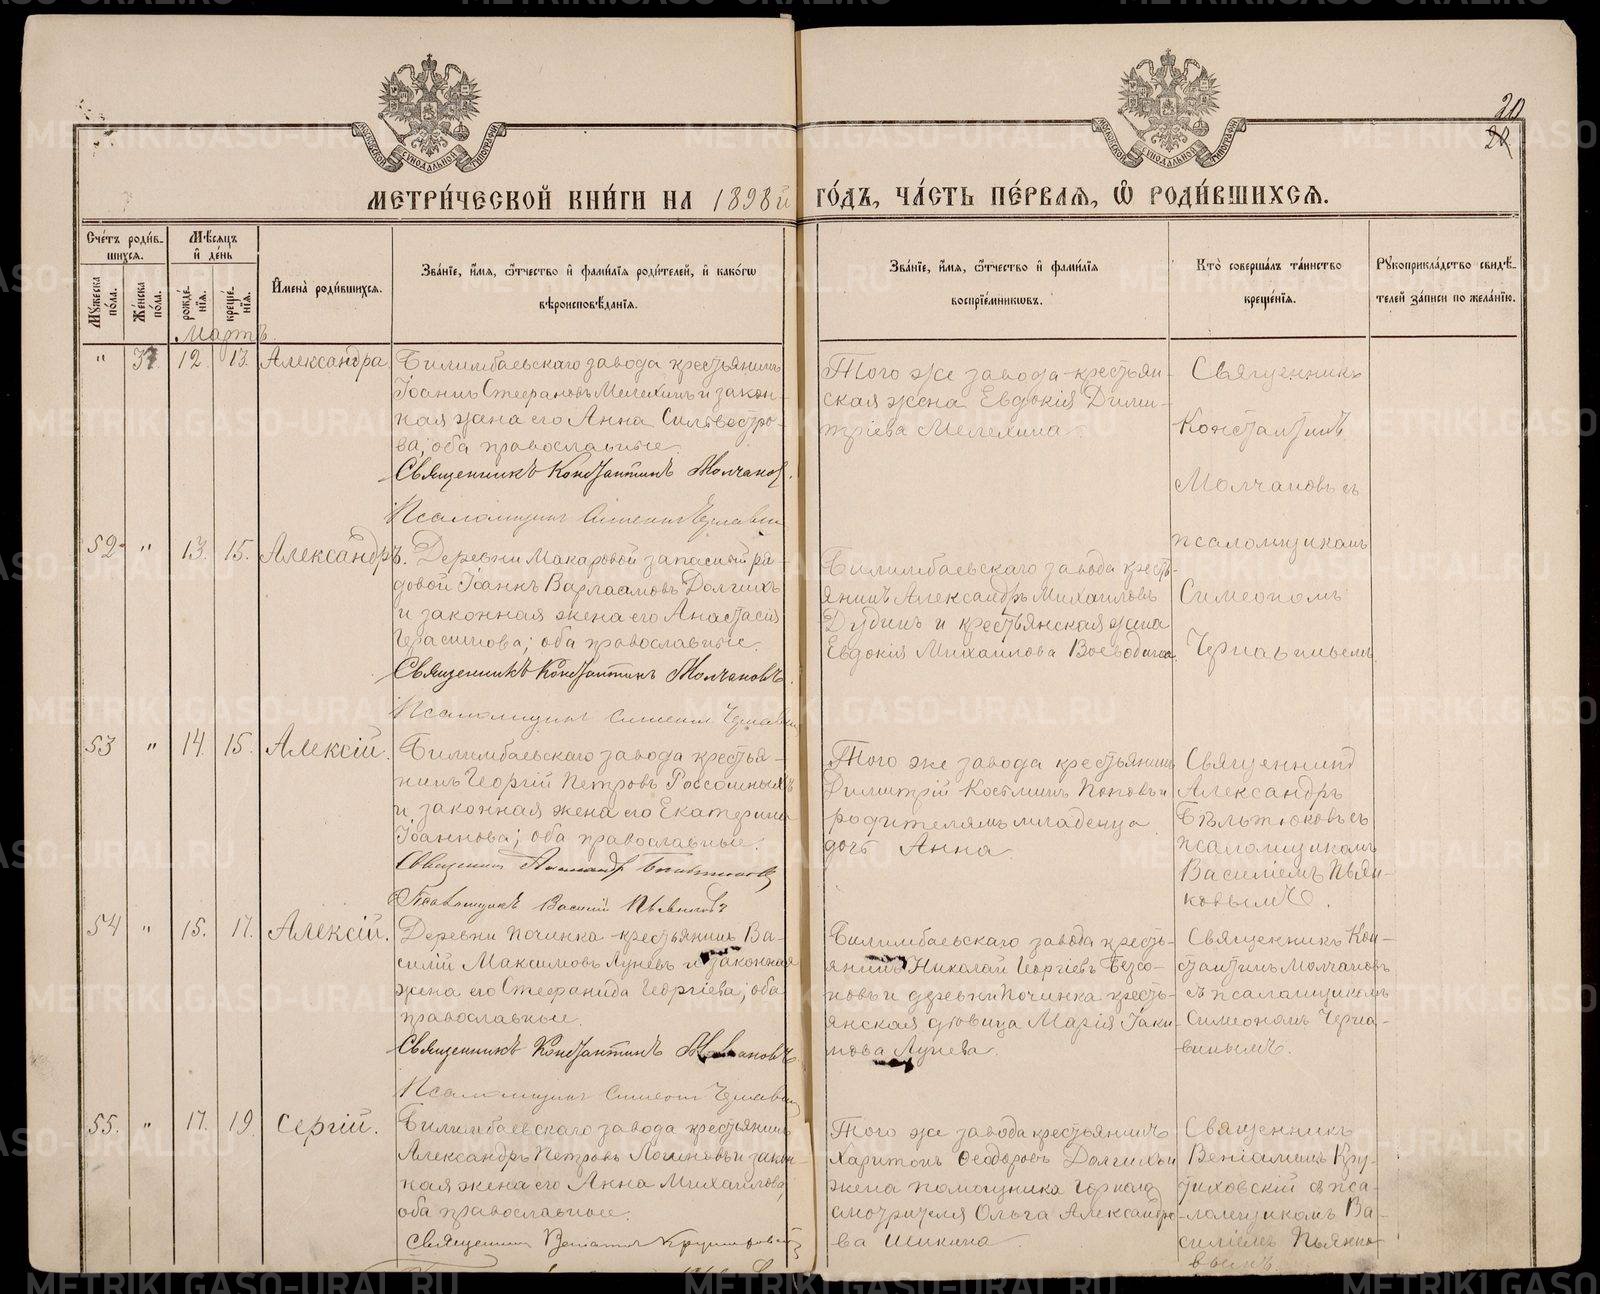 20
МЕТРИ́ЧЕСКОЙ КНИ́ГИ НА 1898й ГО́ДЪ, ЧА́СТЬ ПЕ́РВАЯ, Ѿ РОДИ́ВШИХСЯ.
Сче́тъ роди́в-
шихся.
Му́жеска по́ла.
Же́нска по́ла.
Мѣ́сяцъ и де́нь
рожде́нїя.
креще́нїя.
Имена̀ роди́вшихся.
Зва́нїе, и́мя, ѻ́тчество и фами́лїя роди́телей, и како́гѡ
вѣроисповѣ́данїя.
Зва́нїе, и́мя, ѻ́тчество и фами́лїя
воспрїе́мниковъ.
Кто̀ соверша́лъ та́инство
креще́нїя.
Рꙋкоприкла́дство свидѣ́-
телей за́писи по жела́нїю.
Мартъ
" 37 12 13. Александра
Билимбаевскаго завода крестьянинъ
Іоаннъ Стефановъ Мелехинъ и закон-
ная жена его Анна Сильвестро-
ва, оба православные.
Священникъ Константинъ Молчановъ.
Псаломщикъ Симеонъ Чернавинъ
Того же завода крестьян-
ская жена Евдокія Дими-
тріева Мелехина.
Священникъ
Константинъ
Молчановъ съ
псаломщикомъ
Симеономъ
Чернавинымъ
52 " 13. 15. Александръ.
Деревни Макаровой запасный ря-
довой Іоаннъ Варлаамовъ Долгихъ
и законная жена его Анастасія
Герасимова; оба православные.
Священникъ Константинъ Молчановъ.
Псаломщикъ Симеонъ Чернавинъ
Билимбаевскаго завода кресть-
янинъ Александръ Михаиловъ
Дудинъ и крестьянская жена
Евдокія Михаилова Воеводина.
53 " 14. 15. Алексій.
Билимбаевскаго завода крестья-
нинъ Георгій Петровъ Россомныхъ
и законная жена его Екатерина
Іоаннова; оба православные.
Священникъ Александръ Бѣльтюковъ
Псаломщикъ Василій Пьянковъ
Того же завода крестьянинъ
Димитрій Косминъ Поповъ и
родителямъ младенца
дочь Анна.
Священникъ
Александръ
Бѣльтюковъ съ
псаломщикомъ
Василіемъ Пьян-
ковымъ.
54 " 15. 17. Алексій.
Деревни Починка крестьянинъ Ва-
силій Максимовъ Луневъ и законная
жена его Стефанида Георгіева; оба
православные.
Священникъ Константинъ Молчановъ.
Псаломщикъ Симеонъ Чернавинъ
Билимбаевскаго завода кресть-
янинъ Николай Георгіевъ Безсо-
новъ и деревни Починка кресть-
янская дѣвица Марія Іаки-
мова Лунева.
Священникъ Кон-
стантинъ Молчановъ
съ псаломщикомъ
Симеономъ Черна-
винымъ.
55. " 17. 19. Сергій.
Билимбаевскаго завода крестьянинъ
Александръ Петровъ Логиновъ и закон-
ная жена его Анна Михаилова,
оба православные.
Священникъ Веніаминъ
Того же завода крестьянинъ
Харитонъ Ѳеодоровъ Долгихъ и
жена помощника Горнаго
смотрителя Ольга Александро-
ва Шикина.
Священникъ
Веніаминъ Кру-
тиховскій съ пса-
ломщикомъ Ва-
силіемъ Пьянко-
вымъ.
METRIKI.GASO-URAL.RU